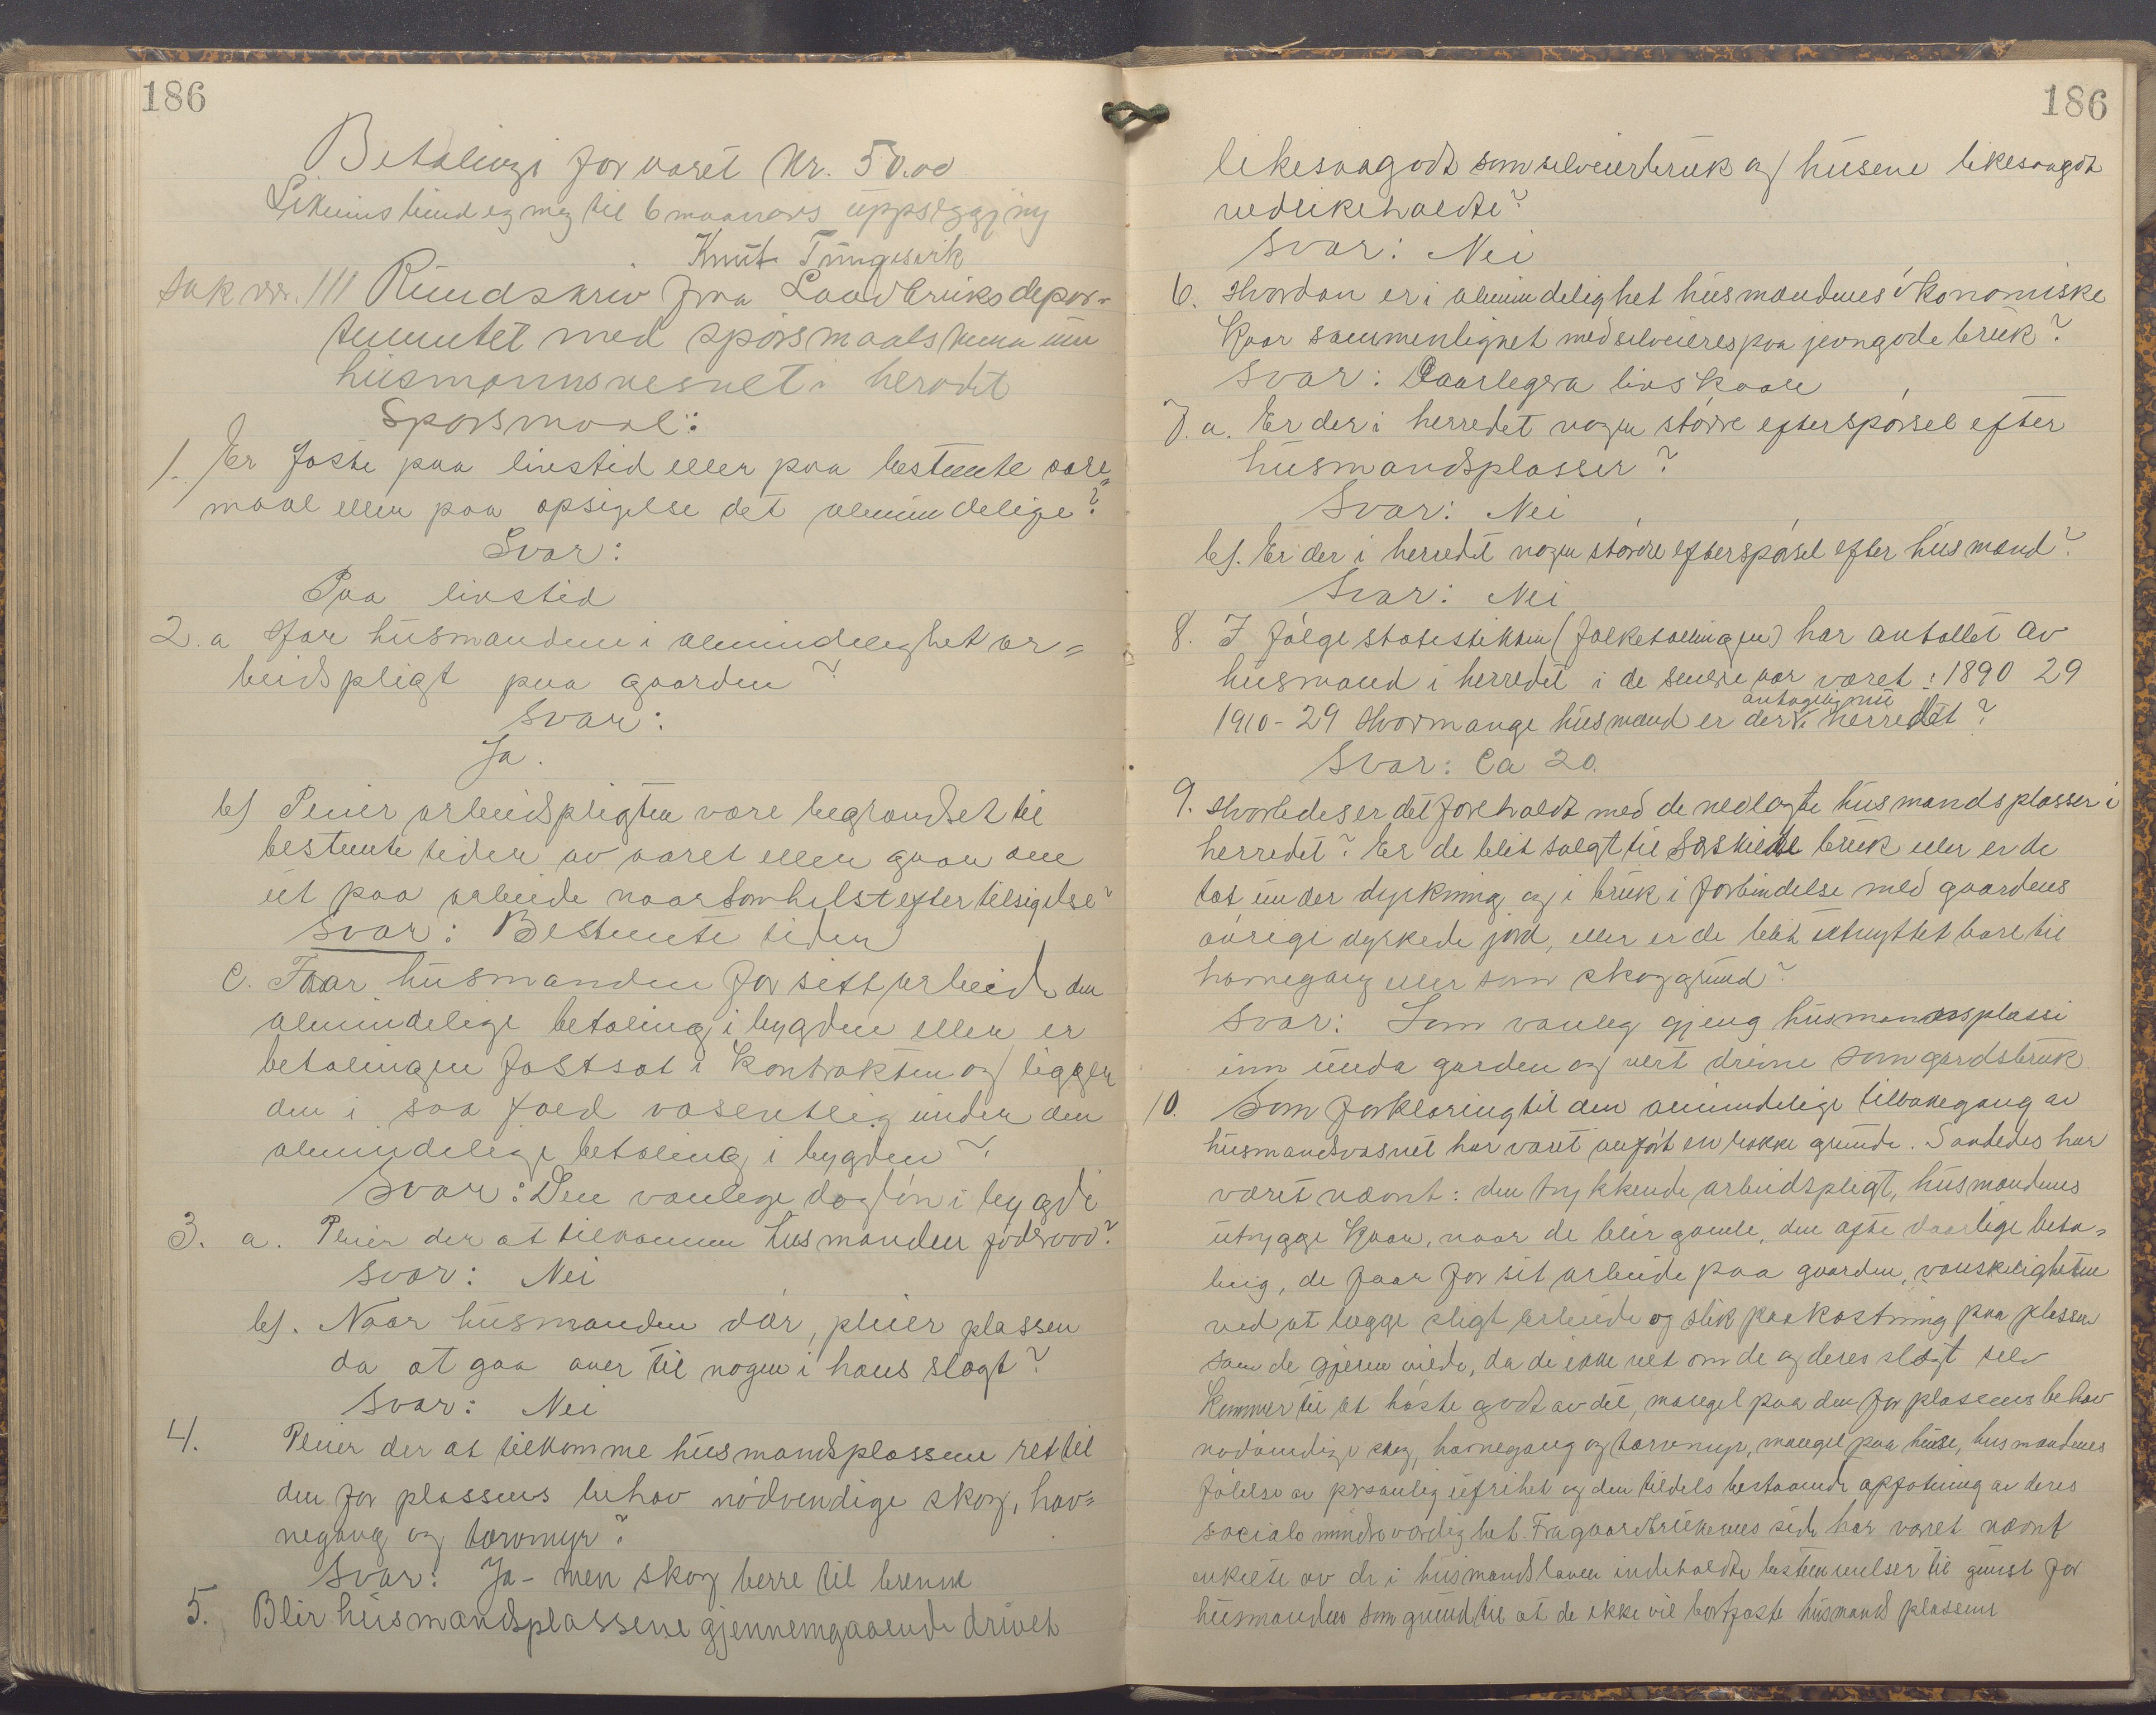 186
Betaling for aaret kr. 50.00
Likeins bind eg meg til 6 maanars uppseggjing
Knut Tungesvik
Sak nr. 111 Rundskriv fra Landbruksdepar-
tementet med spörsmaalskema um
husmannsvesnet i heradet
Spörsmaal:
1. Er föste paa livstid eller paa bestemte aare=
maal eller paa opsigelse det almindelige?
Svar:
Paa livstid
2. a Har husmanden i almindelighet ar=
beidspligt paa gaarden?
Svar:
Ja.
b) Pleier arbeidspligten være begrændset til
bestemte tider av aaret eller gaar den
ut paa arbeide naarsomhelst efter tilsigelse?
Svar: Bestemte tider
c. Faar husmanden for sitt arbeide den
almindelige betaling i bygden eller er
betalingen fastsat i kontrakten og ligger
den i saa fald væsentlig under den
almindelige betaling i bygden?
Svar: Den vanlege daglön i bygdi
3. a. Pleier der at tilkomme husmanden föderaad?
Svar: Nei
b). Naar husmanden dör, pleier plassen
da at gaa over til nogen i hans slægt?
Svar: Nei
4. Pleier der at tilkomme husmandsplassene ret til
den for plassens behov nödvendige skog, hav=
negang og torvmyr?
Svar: Ja - men skog berre til brenne
5. Blir husmandsplassene gjennemgaaende drivet
186
likesaagodt som selveierbruk og husene likesaagodt
vedlikeholdte?
Svar: Nei
6. Hvordan er i almindelighet husmandens ökonomiske
kaar sammenlignet med selveieres paa jevngode bruk?
Svar: Daarlegera livskaar
7. a. Er der i herredet nogen större efterspörsel efter
husmandsplasser?
Svar: Nei
b). Er der i herredet nogen större efterspörsel efter husmænd?
Svar: Nei
8. I fölge statistikken (folketællingen) har antallet av
husmænd i herredet i de senere aar været: 1890 29
antagelig nu
1910 - 29 Hvormange husmænd er der i herredet?
Svar: Ca 20.
9. Hvorledes er det forholdt med de nedlagte husmandsplasser i
herredet? Er de blit solgt til særskilte bruk eller er de
tat under dyrkning og i bruk i forbindelse med gaardens
övrige dyrkede jord, eller er de blit utnyttet bare til
havnegang eller som skoggrund?
Svar: Som vanleg gjeng husmannsplassi
inn unda garden og vert drivne som gardsbruk.
10. Som forklaring til den almindelige tilbakegang av
husmandsvæsnet har været anfört en række grunde. Saaledes har
været nævnt: den trykkende arbeidspligt, husmændenes
utrygge kaar, naar de blir gamle, den ofte daarlige beta=
ling, de faar for sit arbeide paa gaarden, vanskeligheten
ved at lægge sligt arbeide og slik paakostning paa plassen
som de gjerne vilde, da de ikke vet om de og deres slægt selv
kommer til at höste godt av det, mangel paa den for plassens behov
nödvendige skog, havnegang og torvmyr, mangel paa huse, husmændenes
fölelse av personlig ufrihet og den tildels bestaaende opfatning av deres
sociale mindreværdighet. Fra gaardbrukernes side har været nævnt
enkelte av de i husmandsloven indeholdte bestemmelser til gunst for
husmanden som grund til at de ikke vil bortfæste husmandsplassene